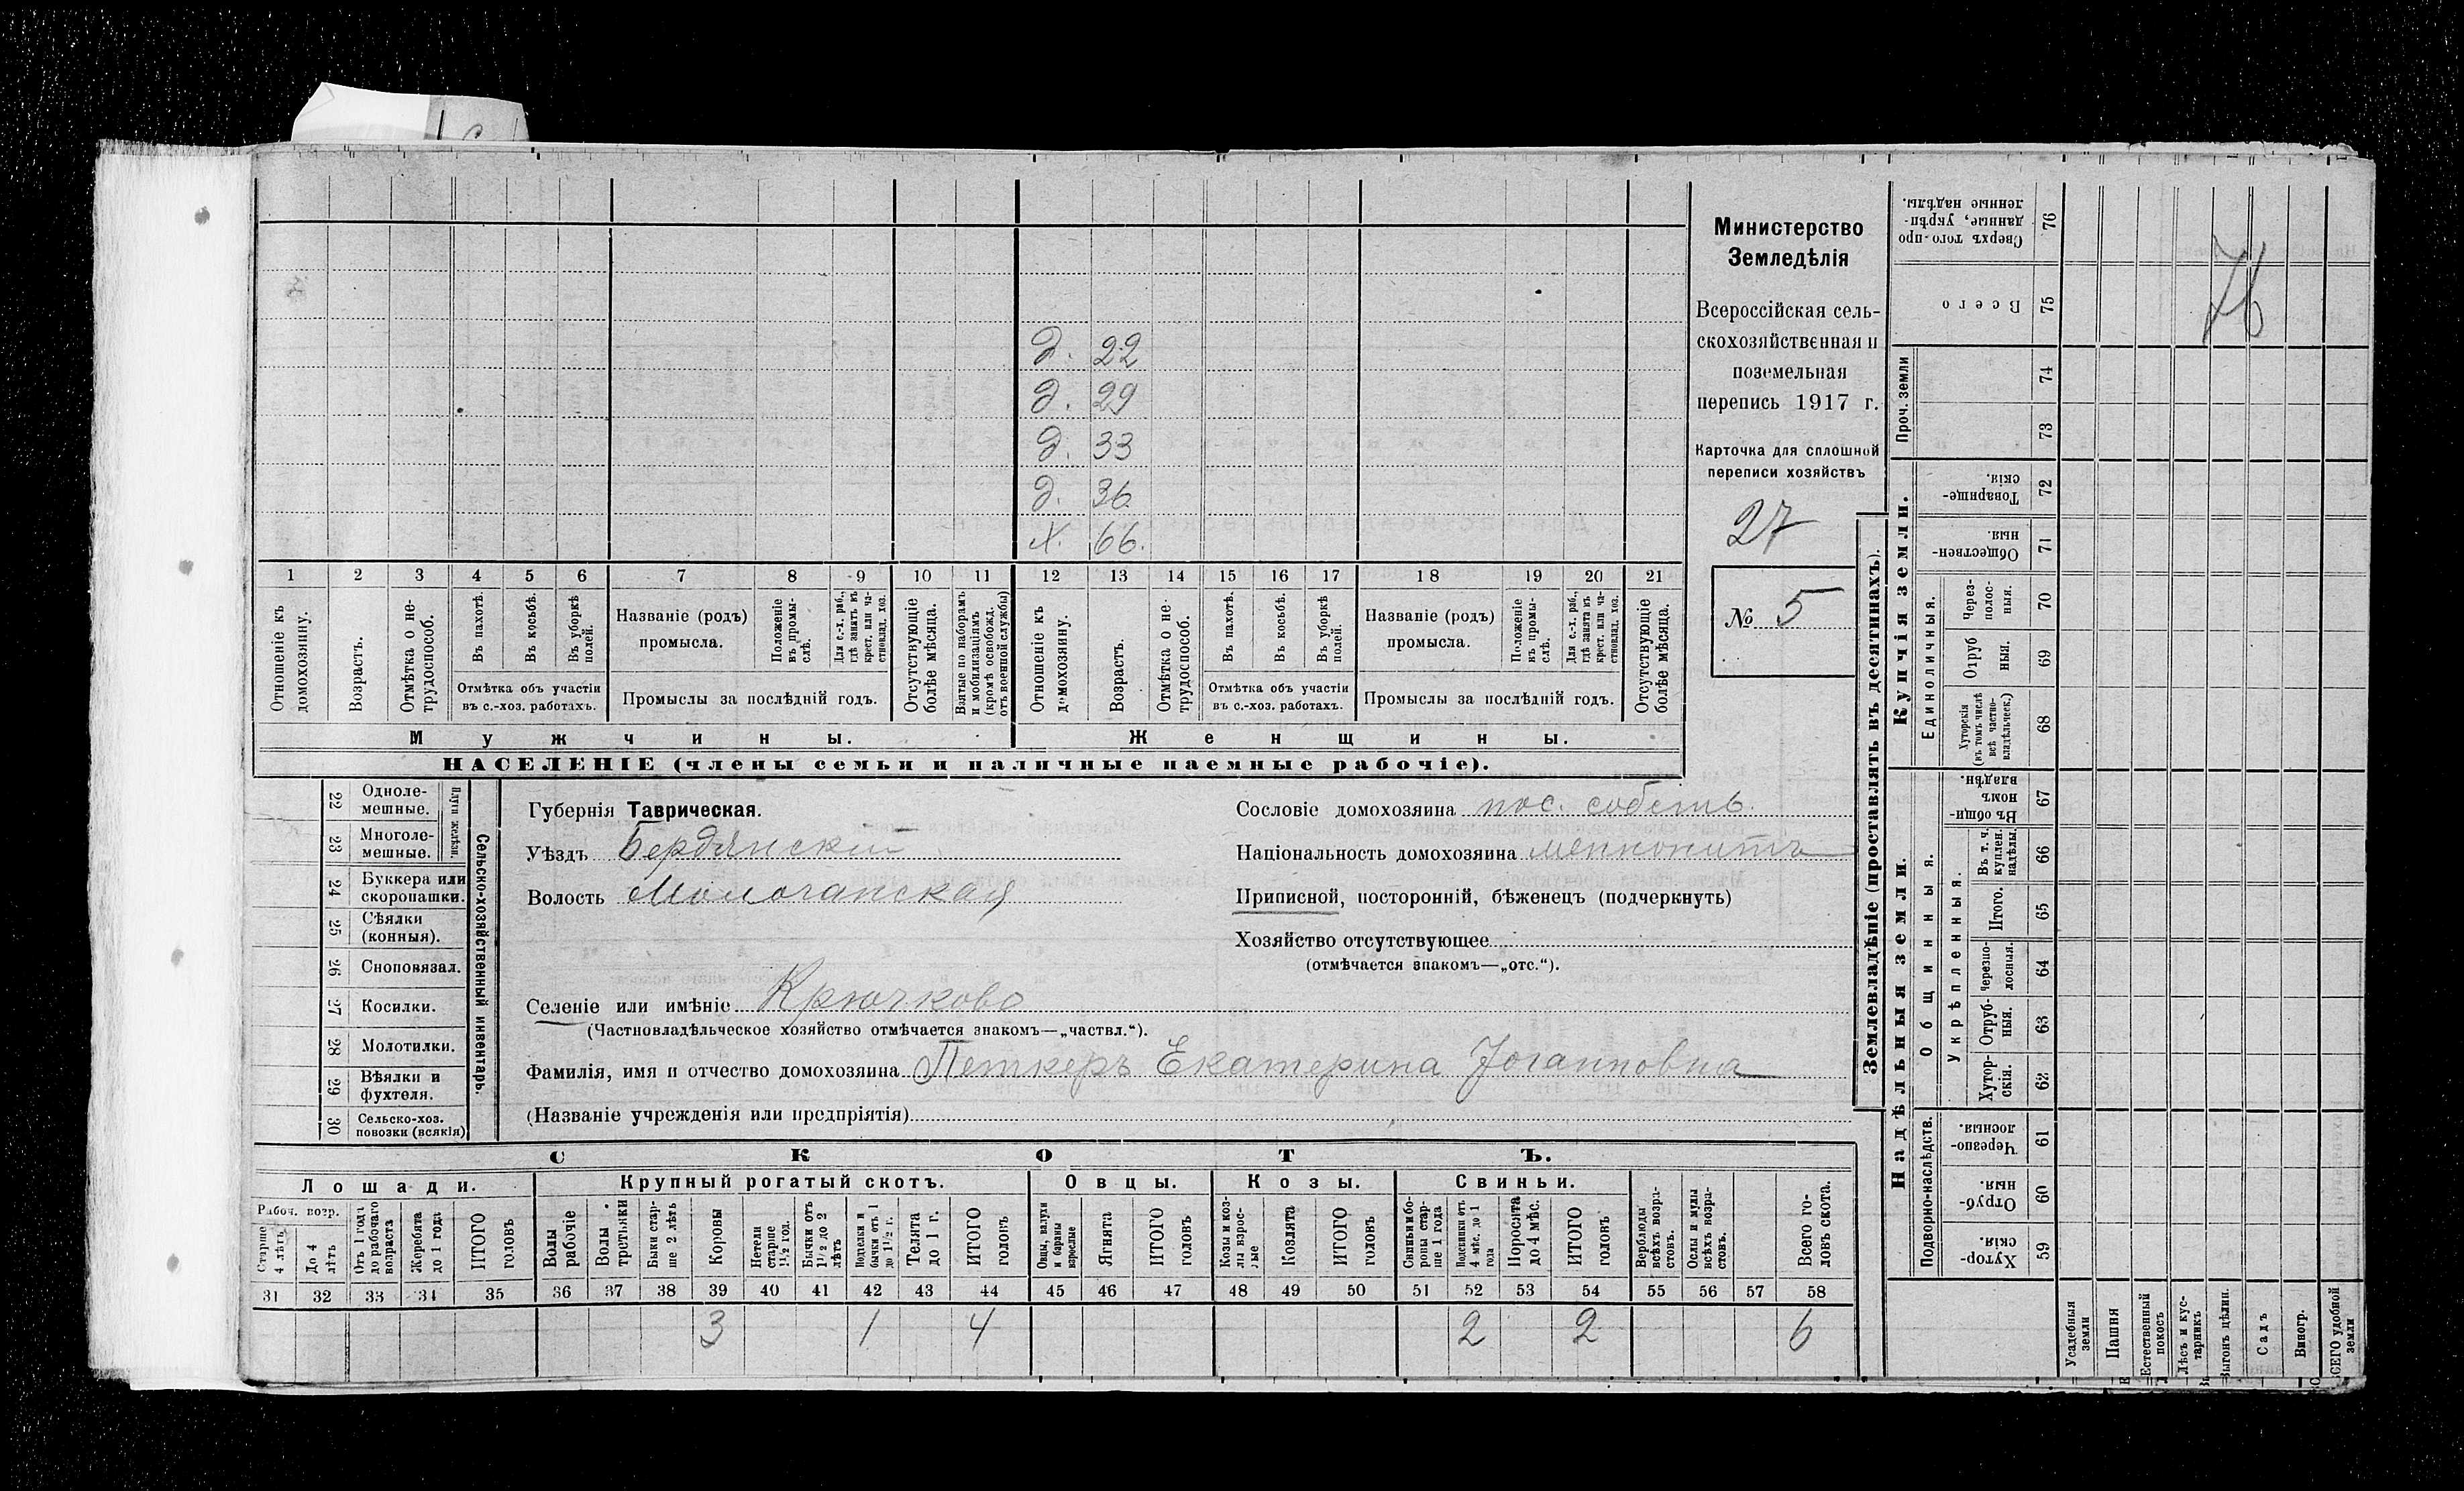 Министерство
Земледѣлія
Всероссійская сель-
скохозяйственная и
поземельная
перепись 1917 г.
Карточка для сплошной
переписи хозяйствъ
27
№ 5
76
д. 22
д. 29
д. 33
д. 36
х. 66.
1 2 3 4 5 6 7 8 9 10 11 12 13 14 15 16 17 18 19 20 21
Отношеніе къ домохозяину.
Возрастъ.
Отмѣтка о не-трудоспособ.
Въ пахотѣ.
Въ косьбѣ.
Въ уборкѣ полей.
Отмѣтка объ участіи
въ с.-хоз. работахъ.
Названіе (родъ)
промысла.
Положеніе въ промы-слѣ.
Для с.-х. раб., гдѣ занятъ въ крест. или ча-стновлад. хоз.
Промыслы за послѣдній годъ.
Отсутствующіе болѣе мѣсяца.
Взятые по наборамъ и мобилизаціямъ (кромѣ освобожд. отъ военной службы)
Отношеніе къ домохозяину.
Возрастъ.
Отмѣтка о не-трудоспособ.
Въ пахотѣ.
Въ косьбѣ.
Въ уборкѣ полей.
Отмѣтка объ участіи
въ с.-хоз. работахъ.
Названіе (родъ)
промысла.
Положеніе въ промы-слѣ.
Для с.-х. раб., гдѣ занята въ крест. или ча-стновлад. хоз.
Промыслы за послѣдній годъ.
Отсутствующіе болѣе мѣсяца.
Мужчины. Женщины.
НАСЕЛЕНІЕ (члены семьи и наличные наемные рабочіе).
22 Одноле-мешные.
23 Многоле-мешные.
Плуги желѣзн.
24 Буккера или скоропашки.
25 Сѣялки (конныя).
26 Сноповязал.
27 Косилки.
28 Молотилки.
29 Вѣялки и фухтеля.
30 Сельско-хоз. повозки (всякія)
Сельско-хозяйственный инвентарь.
Губернія Таврическая.
Уѣздъ Бердянскій
Волость Молочанская
Селеніе или имѣніе Крючково
(Частновладѣльческое хозяйство отмѣчается знакомъ—„частвл.“).
Фамилія, имя и отчество домохозяина Петкеръ Екатерина Іоганновна
(Названіе учрежденія или предпріятія)
Сословіе домохозяина пос. собств.
Національность домохозяина меннонитъ
Приписной, посторонній, бѣженец (подчеркнуть)
Хозяйство отсутствующее
(отмѣчается знакомъ—„отс.“).
СКОТЪ.
Лошади. Крупный рогатый скотъ. Овцы. Козы. Свиньи.
Рабоч. возр.
Старше 4 лѣтъ
До 4 лѣтъ
Отъ 1 года до рабочаго возраста
Жеребята до 1 года
ИТОГО головъ
Волы рабочіе
Волы третьяки
Быки стар-ше 2 лѣтъ
Коровы
Нетели старше 1½ год.
Бычки отъ 1½ до 2 лѣтъ
Подтелки и бычки отъ 1 до 1½ г.
Телята до 1 г.
ИТОГО головъ
Овцы, валухи и бараны взрослые
Ягнята
ИТОГО головъ
Козы и коз-лы взрос-лые
Козлята
ИТОГО головъ
Свиньи и бо-ровы стар-ше 1 года
Подсвинки отъ 4 мѣс. до 1 года
Поросята до 4 мѣс.
ИТОГО головъ
Верблюды всѣхъ возра-стовъ.
Ослы и мулы всѣхъ возра-стовъ.
Всего го-ловъ скота.
31 32 33 34 35 36 37 38 39 40 41 42 43 44 45 46 47 48 49 50 51 52 53 54 55 56 57 58
3 1 4 2 2 6
Землевладѣніе (проставлять въ десятинахъ).
Купчія земли.
Надѣльныя земли.
Проч. земли
Единоличныя.
Общинныя.
Укрѣпленныя.
Подворно-наслѣдств.
Сверхъ того про-данные, укрѣп-ленные надѣлы. 76
Всего 75
74
73
Товарище-скія. 72
Обществен-ныя. 71
Через-полос-ныя. 70
Отруб ныя. 69
Хуторскія (въ томъ числѣ всѣ частно-владѣльческ.) 68
Въ общин-номъ владѣн. 67
Въ т. ч. куплен. надѣлы. 66
Итого. 65
Черезпо-лосныя. 64
Отруб-ныя. 63
Хутор-скія. 62
Черезпо-лосныя. 61
Отруб-ныя. 60
Хутор-скія. 59
Усадебныя земли
Пашня
Естественный покосъ
Лѣсъ и кус-тарникъ
Выгонъ цѣлин.
Садъ
Виногр.
ВСЕГО удобной земли